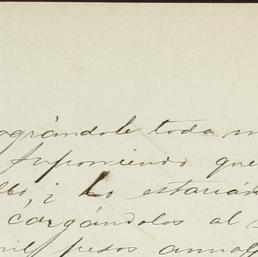 ográndole toda m
Suponiendo que
¿ no estarían
cargándolos al
mil pesos anual